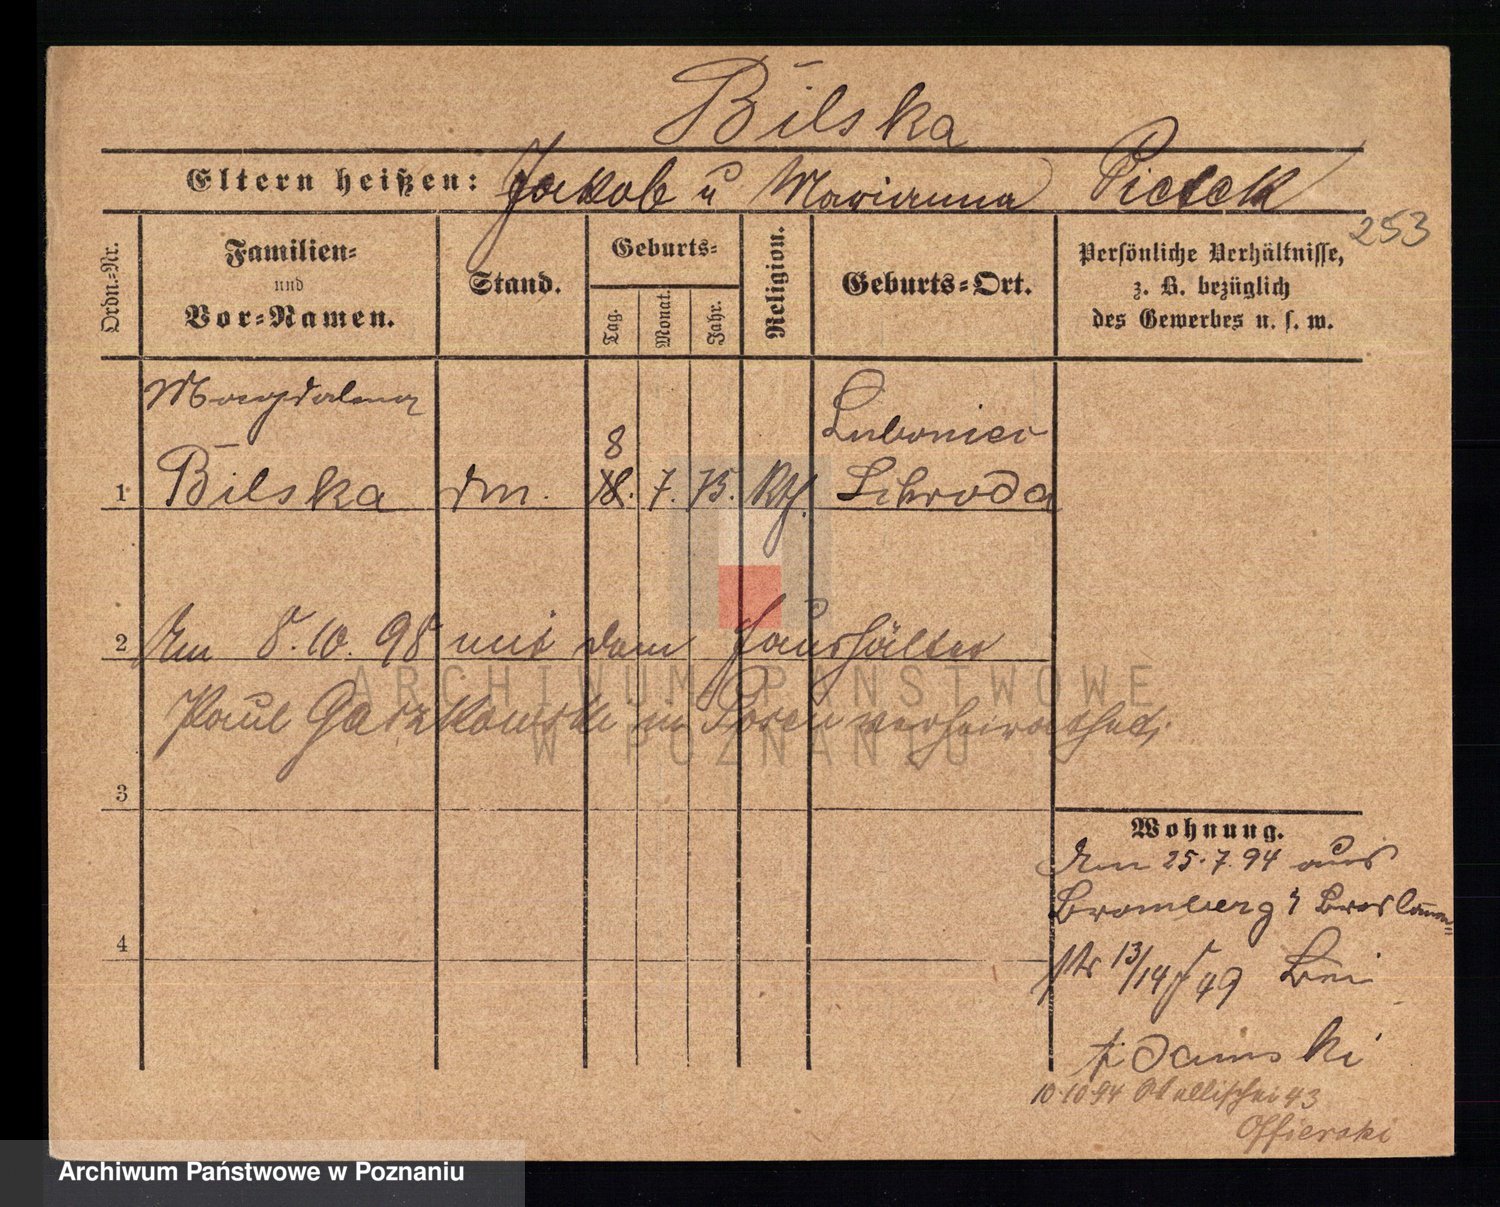 Bilska
Eltern heißen: Jakob u Marianna Pietek
253
Ordn.-Nr.
Familien- und Vor-Namen.
Stand.
Geburts-
Tag. Monat. Jahr.
Religion.
Geburts-Ort.
Persönliche Verhältnisse,
z. B. bezüglich
des Gewerbes u. s. w.
Magdalena
8
Luboniec
1 Bilska dm. 18. 7. 75. Kth. Schroda
2 Am 8.10.98 mit dem Haushälter
Paul in Posen verheirathet.
3
4
Wohnung.
Am 25.7.94 aus
Bromberg
str 13/14 49 bei
10.10.94 43
ARCHIWUM PAŃSTWOWE
W POZNANIU
Archiwum Państwowe w Poznaniu